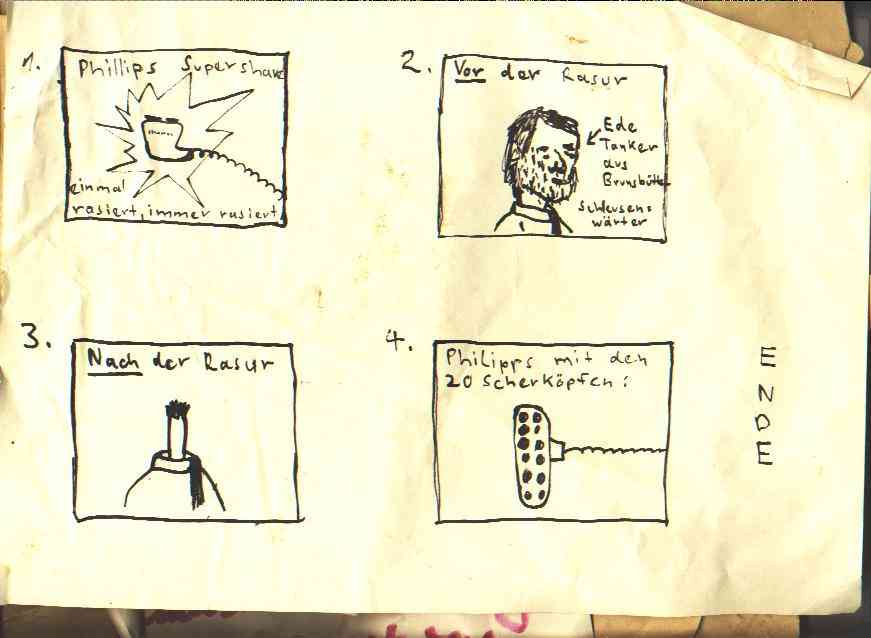 1.
Phillips Supershave
einmal
rasiert, immer rasiert
2.
Vor der Rasur
Ede
Tanker
aus
Brunsbüttel
Schleusen=
wärter
3.
Nach der Rasur
4.
Philipps mit den
20 Scherköpfen:
E
N
D
E